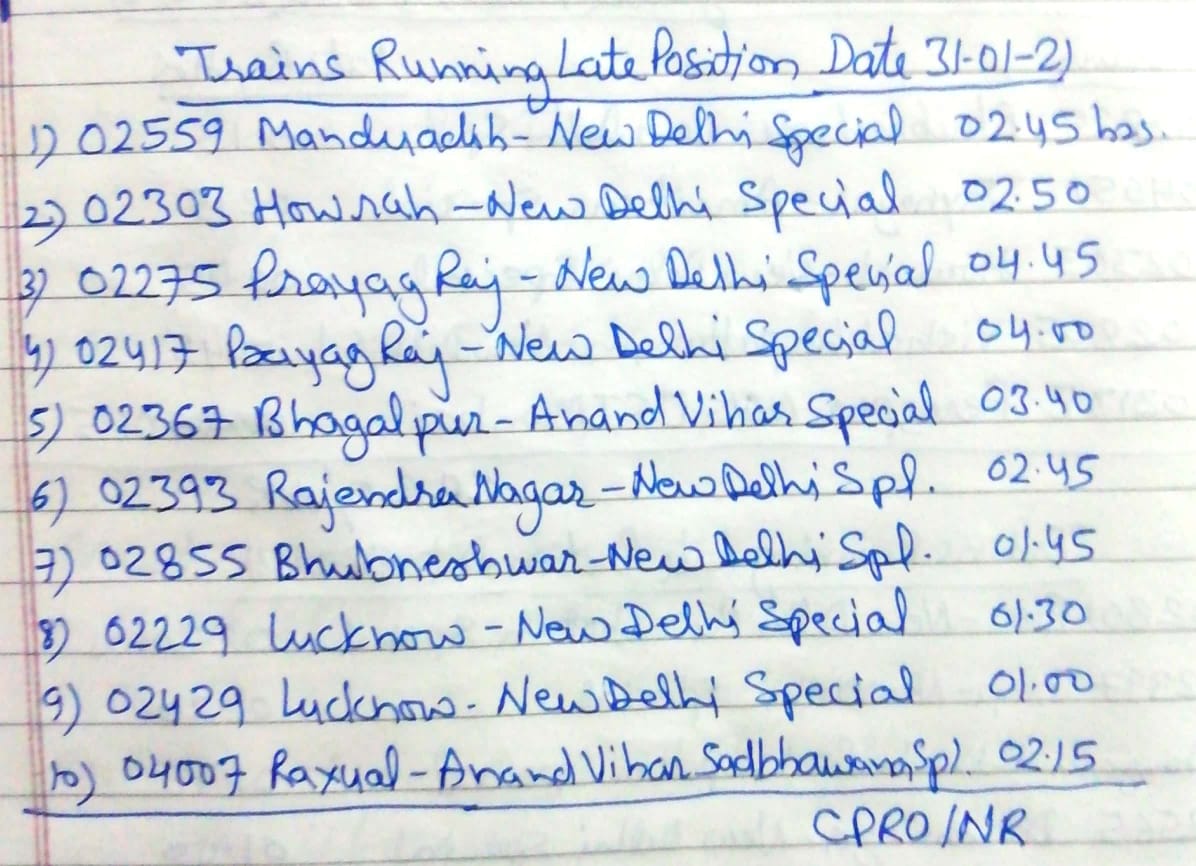 Trains Running Late Position Date 31-01-21
1) 02559 Manduadih - New Delhi Special 02.45 hrs.
2) 02303 Howrah - New Delhi Special 02.50
3) 02275 Prayag Raj - New Delhi Special 04.45
4) 02417 Prayag Raj - New Delhi Special 04.00
5) 02367 Bhagalpur - Anand Vihar Special 03.40
6) 02393 Rajendra Nagar - New Delhi Spl. 02.45
7) 02855 Bhubneshwar - New Delhi Spl. 01.45
8) 02229 Lucknow - New Delhi Special 01.30
9) 02429 Lucknow - New Delhi Special 01.00
10) 04007 Raxual - Anand Vihar Sadbhawana Spl. 02.15
CPRO/NR